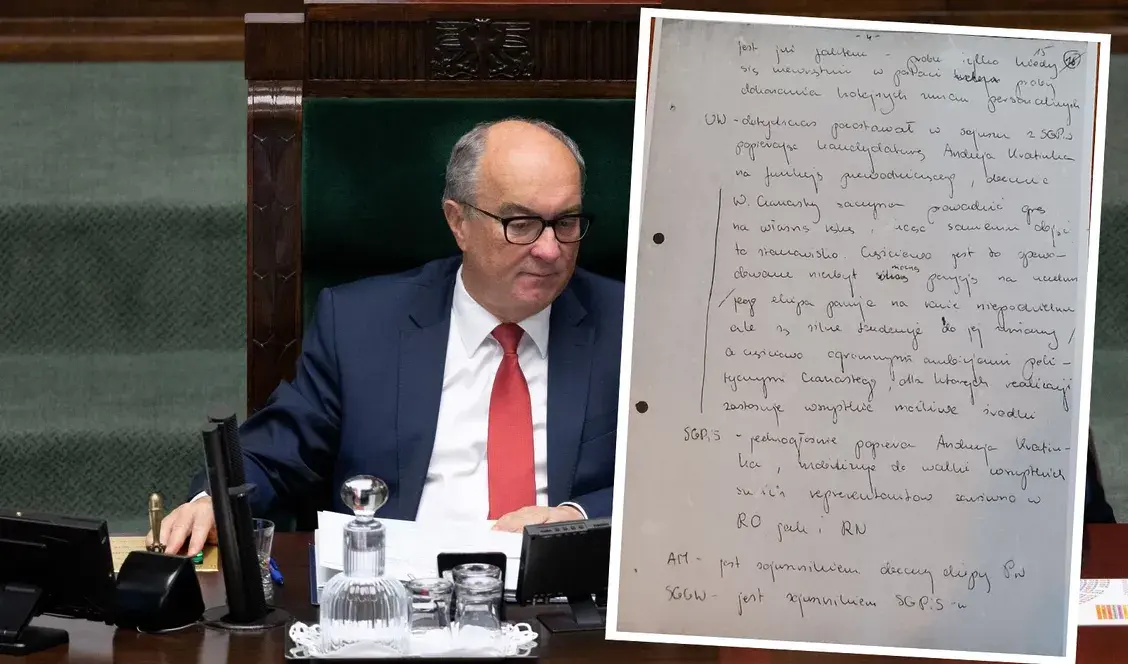 -4-
15
jest już faktem - próbę tylko kiedy
się niewątpliwie w postaci próby
dokonania kolejnych zmian personalnych
UW - dotychczas pozostawał w sojuszu z SGPiS
popierając kandydaturę Andrzeja Kratiuka
na funkcję przewodniczącego, obecnie
W. Czarzasty zaczyna prowadzić grę
na własną rękę,
to stanowisko. Częściowo jest to spowo-
dowane niezbyt mocną pozycją na uczelni
/jego ekipa panuje na niepodzielnie
ale są silne tendencje do jej zmiany/
a częściowo ogromnymi ambicjami poli-
tycznymi Czarzastego, dla których realizacji
zastosuje wszystkie możliwe środki
SGPiS - jednogłośnie popiera Andrzeja Kratiu-
ka, mobilizuje do walki wszystkich
swoich reprezentantów zarówno w
RO jak i RN
AM - jest sojusznikiem obecnej ekipy
SGGW - jest sojusznikiem SGPiS-u